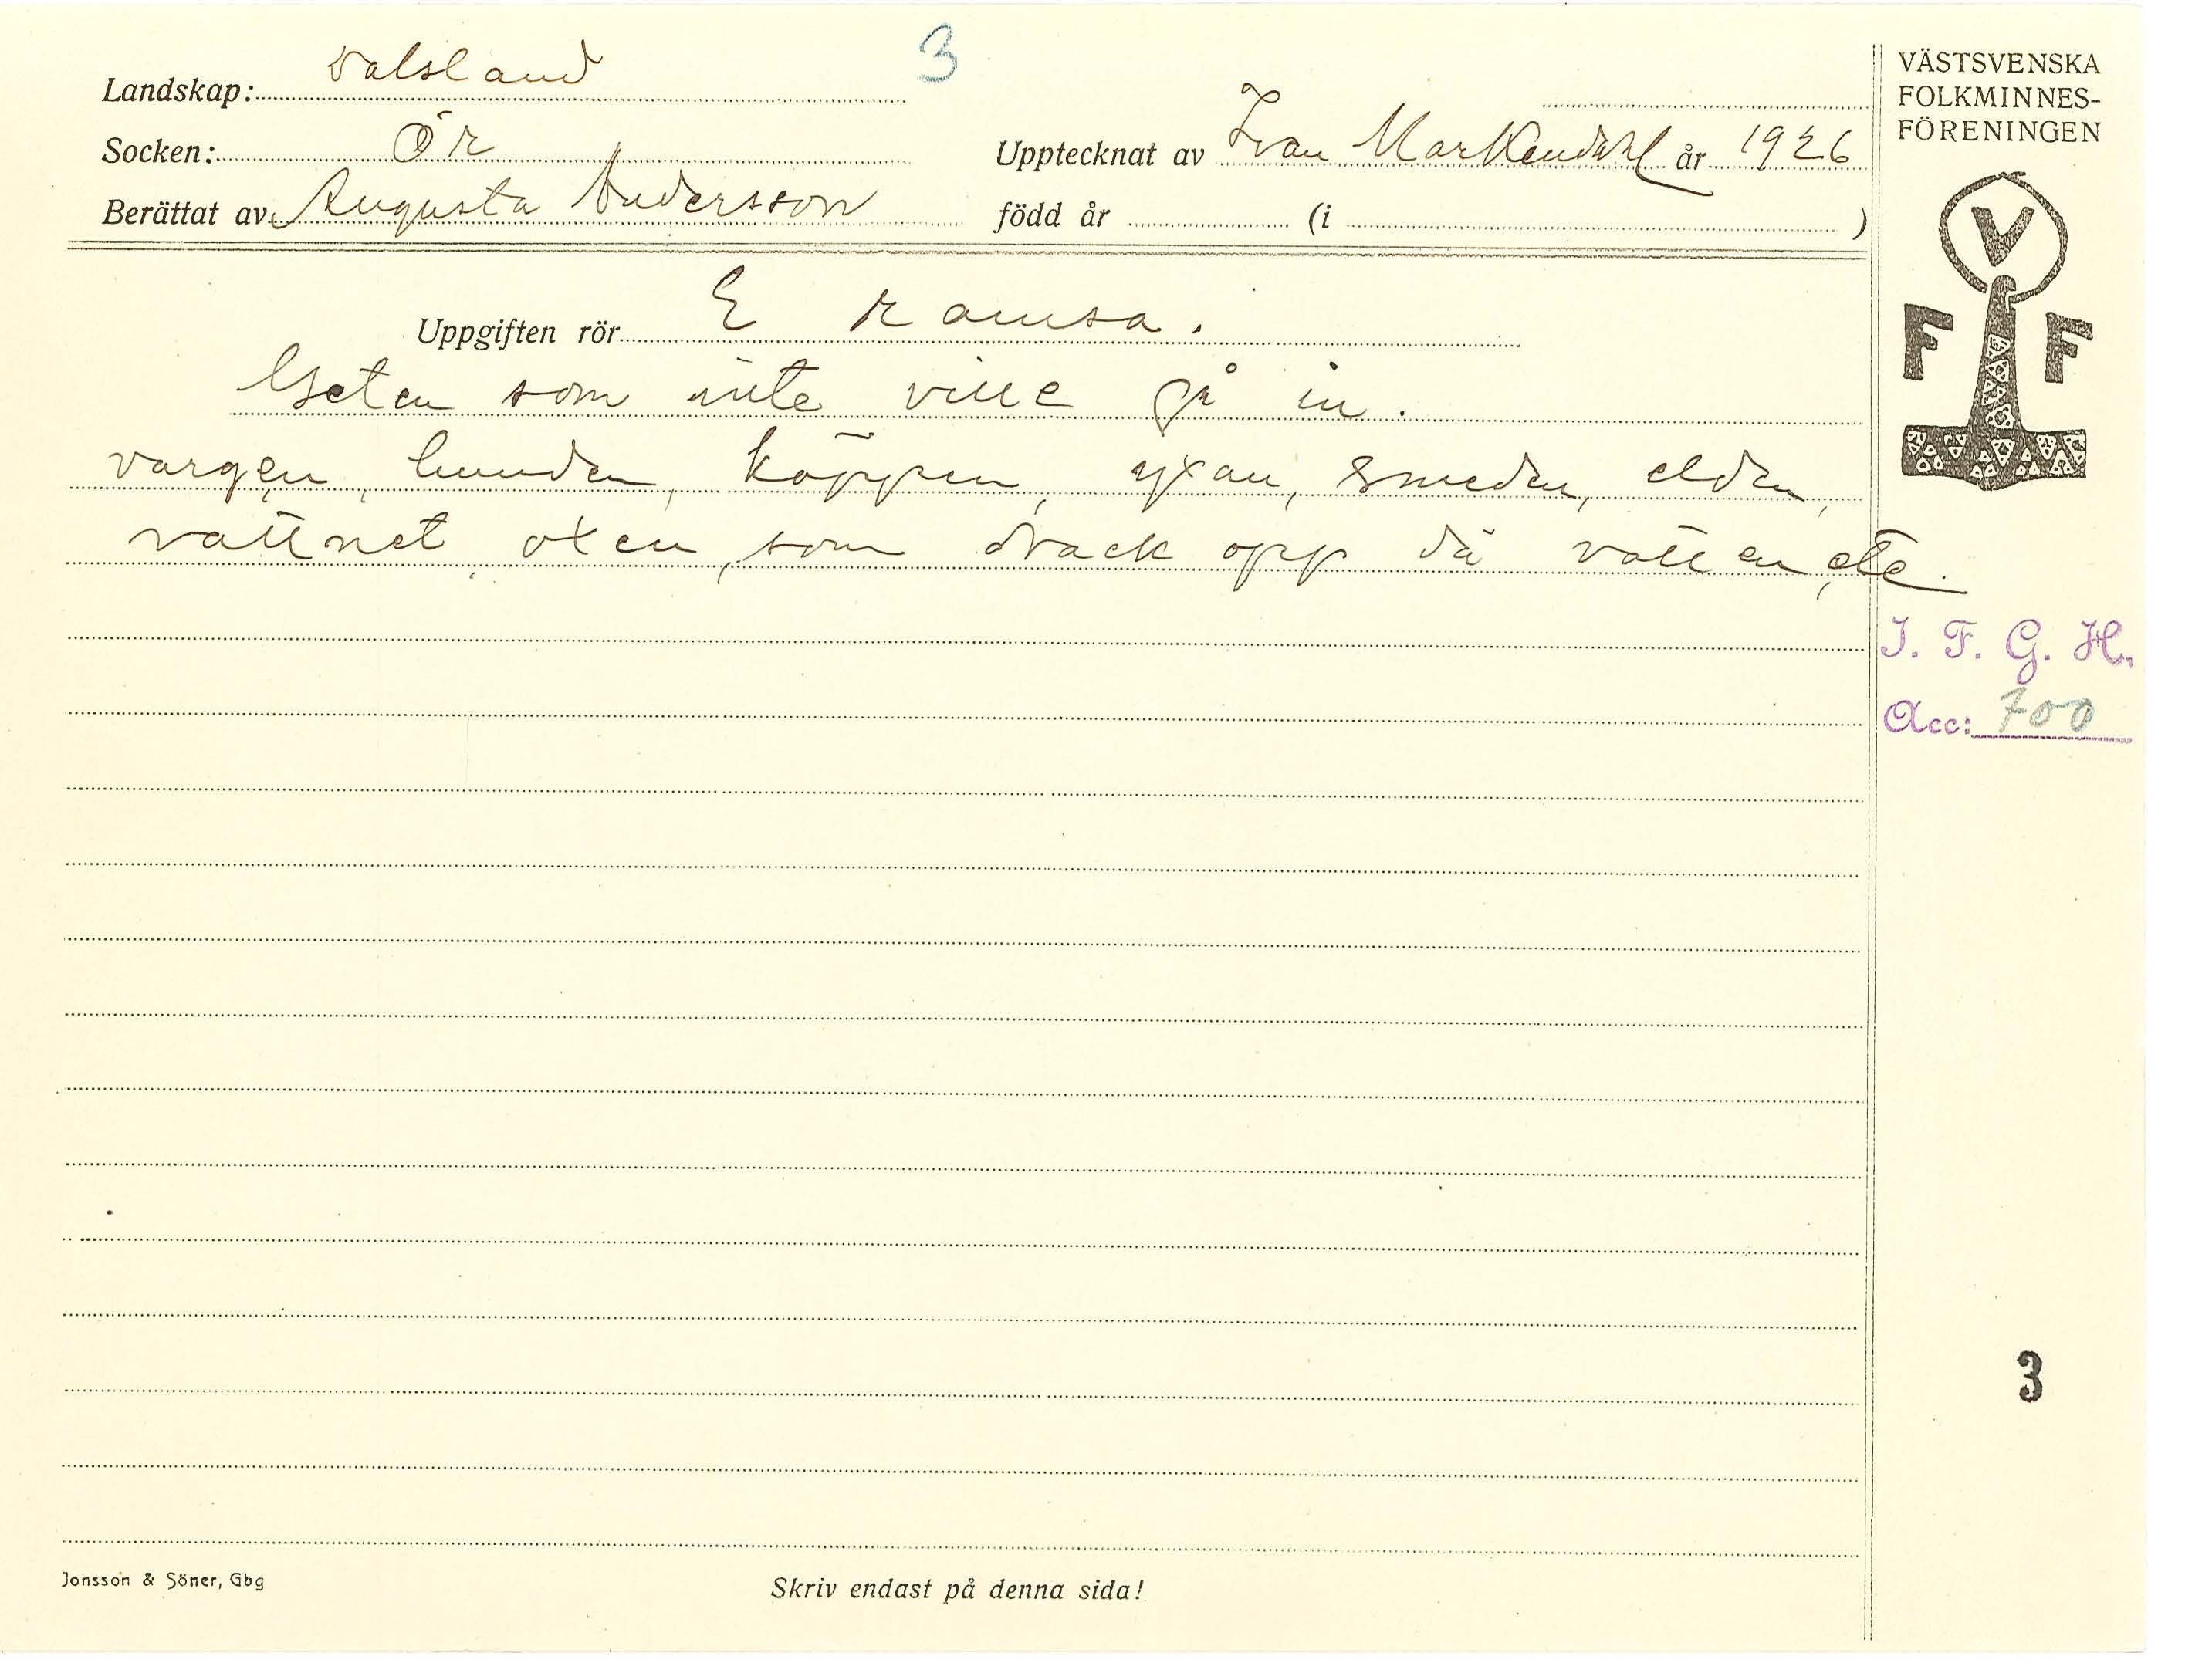 3
Landskap: Dalsland
Socken: Ör
Upptecknat av Ivan Markendahl år 1926
Berättat av Augusta Andersson
född år (i )
Uppgiften rör E ramsa.
Geten som inte ville gå in.
vargen, hunden, käppen, yxan, smeden, elden,
vattnet, oxen, som drack opp dä vatten, etc.
VÄSTSVENSKA
FOLKMINNES-
FÖRENINGEN
V
F F
I. F. G. H.
Acc: 700
3
Jonsson & Söner, Gbg
Skriv endast på denna sida!